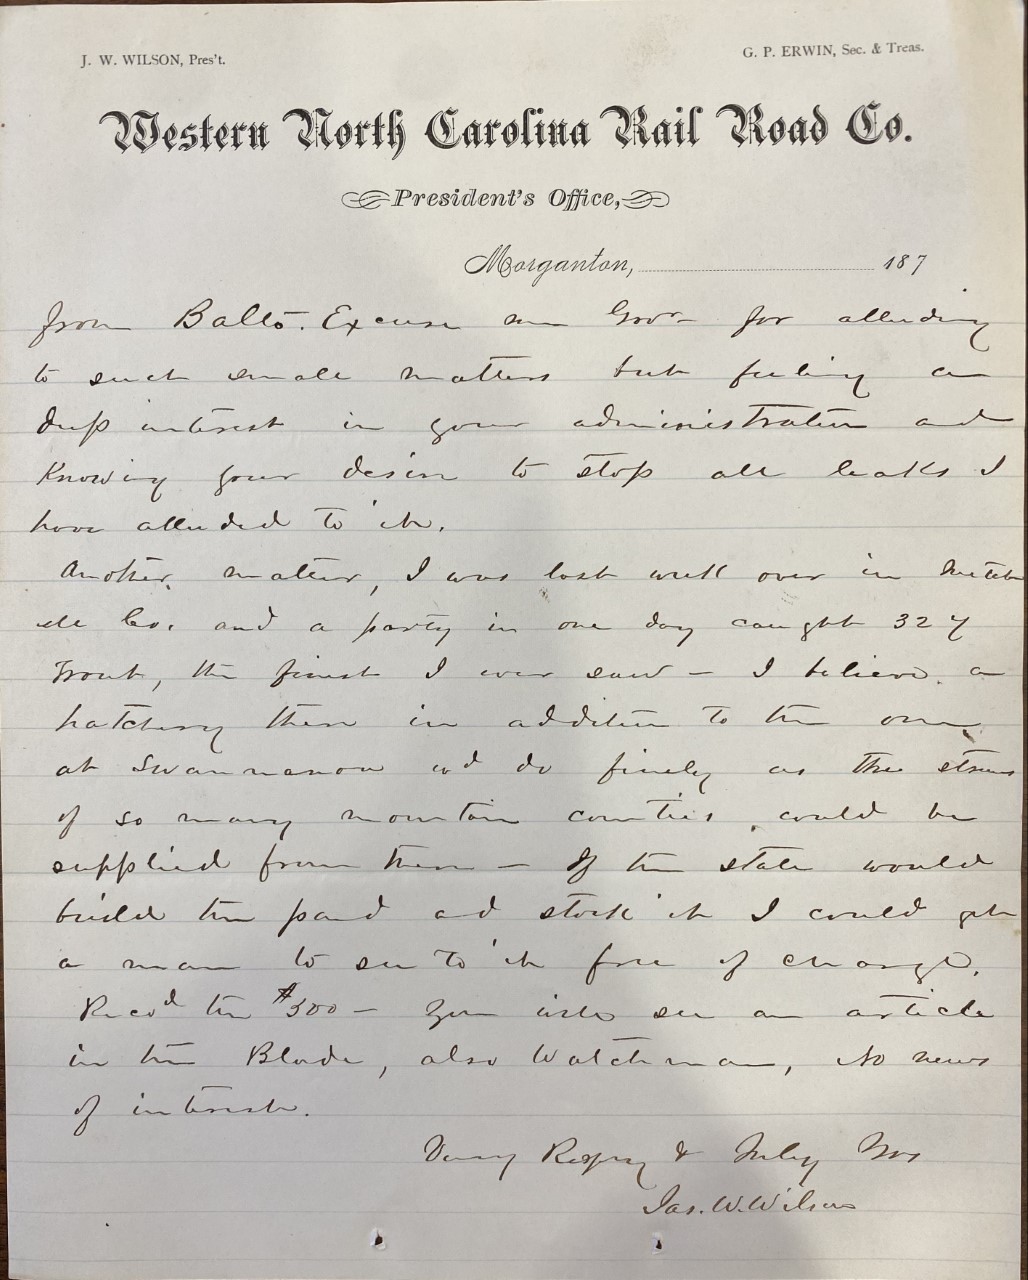 J. W. WILSON, Pres't.
G. P. ERWIN, Sec. & Treas.
Western North Carolina Rail Road Co.
President's Office,
Morganton, 187
from Balto. Excuse me Govr for alluding
to such small matters but feeling a
deep interest in your administration and
Knowing your desire to stop all leaks I
have alluded to it.
Another matter, I was last week over in Mitch
ell Co. and a party in one day caught 327
Trout, the finest I ever saw — I believe a
hatchery there in addition to the one
at Swannanoa wd do finely as the streams
of so many mountain counties could be
supplied from there — If the state would
build the pond and stock it I could get
a man to see to it free of charge.
Recd the $300 — You will see an article
in the Blade, also Watchman, No news
of interest.
Very Respy & Truly Yrs
Jas. W. Wilson